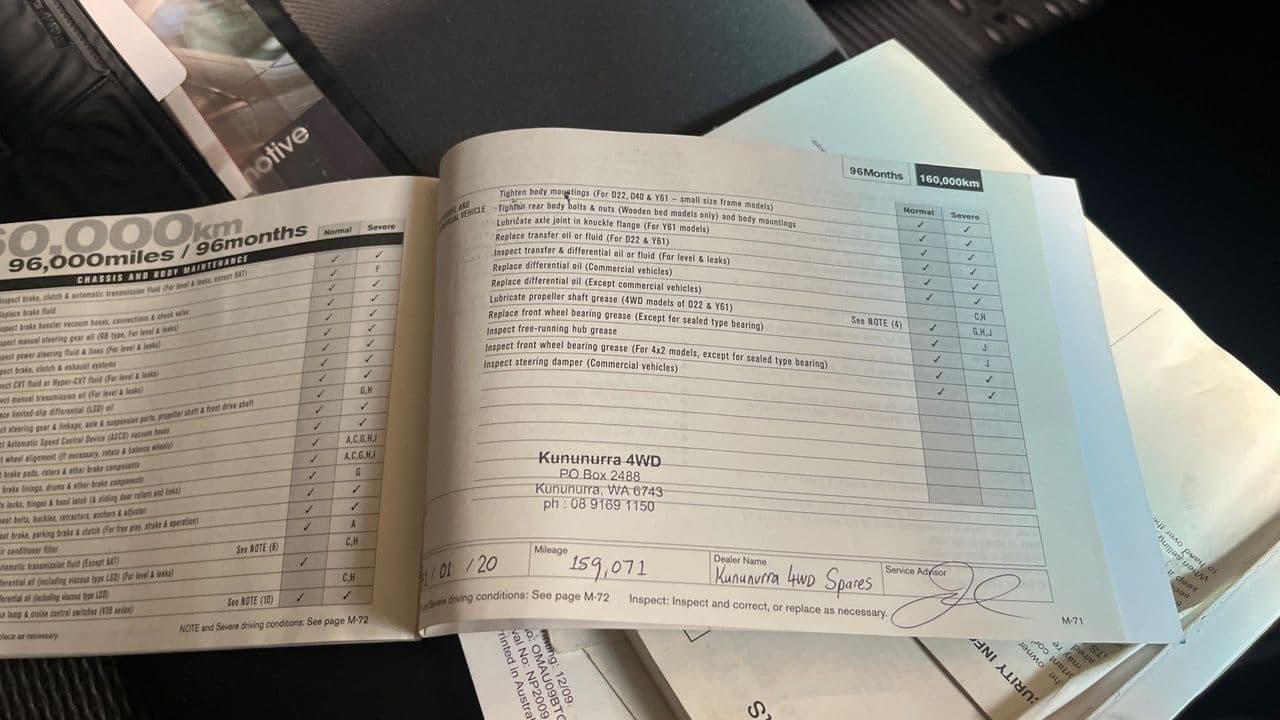 otive
0,000km
96,000miles / 96months
Normal Severe
CHASSIS AND BODY MAINTENANCE
Inspect brake, clutch & automatic transmission fluid (For level & leaks, except GAT) ✓ ✓
Replace brake fluid ✓ F
Inspect brake booster vacuum hoses, connections & check valve ✓ ✓
manual steering gear oil (RB type, For level & leaks) ✓ ✓
power steering fluid & lines (For level & leaks) ✓ ✓
brake, clutch & exhaust systems ✓ ✓
CVT fluid or Hyper-CVT fluid (For level & leaks) ✓ ✓
manual transmission oil (For level & leaks) ✓ ✓
limited-slip differential (LSD) oil ✓ G,H
steering gear & linkage, axle & suspension parts, propeller shaft & front drive shaft
Automatic Speed Control Device (ASCD) vacuum hoses
wheel alignment (If necessary, rotate & balance wheels)
brake pads, rotors & other brake components A,C,G,H,I
brake linings, drums & other brake components A,C,G,H,I
locks, hinges & hood latch (& sliding door rollers and links) G
seat belts, buckles, retractors, anchors & adjuster
brake, parking brake & clutch (For free play, stroke & operation)
air conditioner filter A
transmission fluid (Except GAT) See NOTE (6) C,H
differential oil (including viscous type LSD) (For level & leaks)
differential oil (including viscous type LSD) C,H
lamp & cruise control switches (V36 sedan) See NOTE (10) ✓ ✓
place as necessary.
NOTE and Severe driving conditions: See page M-72
96Months 160,000km
Normal Severe
Tighten body mountings (For D22, D40 & Y61 – small size frame models) ✓ ✓
Tighten rear body bolts & nuts (Wooden bed models only) and body mountings ✓ ✓
Lubricate axle joint in knuckle flange (For Y61 models) ✓ ✓
Replace transfer oil or fluid (For D22 & Y61) ✓ ✓
Inspect transfer & differential oil or fluid (For level & leaks) ✓ ✓
Replace differential oil (Commercial vehicles) ✓ ✓
Replace differential oil (Except commercial vehicles) C,H
Lubricate propeller shaft grease (4WD models of D22 & Y61) See NOTE (4) ✓ G,H,J
Replace front wheel bearing grease (Except for sealed type bearing) ✓ J
Inspect free-running hub grease ✓ J
Inspect front wheel bearing grease (For 4x2 models, except for sealed type bearing) ✓ ✓
Inspect steering damper (Commercial vehicles) ✓ ✓
Kununurra 4WD
PO Box 2488
Kununurra, WA 6743
ph : 08 9169 1150
/ 01 / 20
Mileage
159,071
Dealer Name
Kununurra 4WD Spares
Service Advisor
Severe driving conditions: See page M-72
Inspect: Inspect and correct, or replace as necessary.
M-71
ng: 12/09
No: OMAU09BTC
val No: NP2009
rinted in Austra
CURITY INF